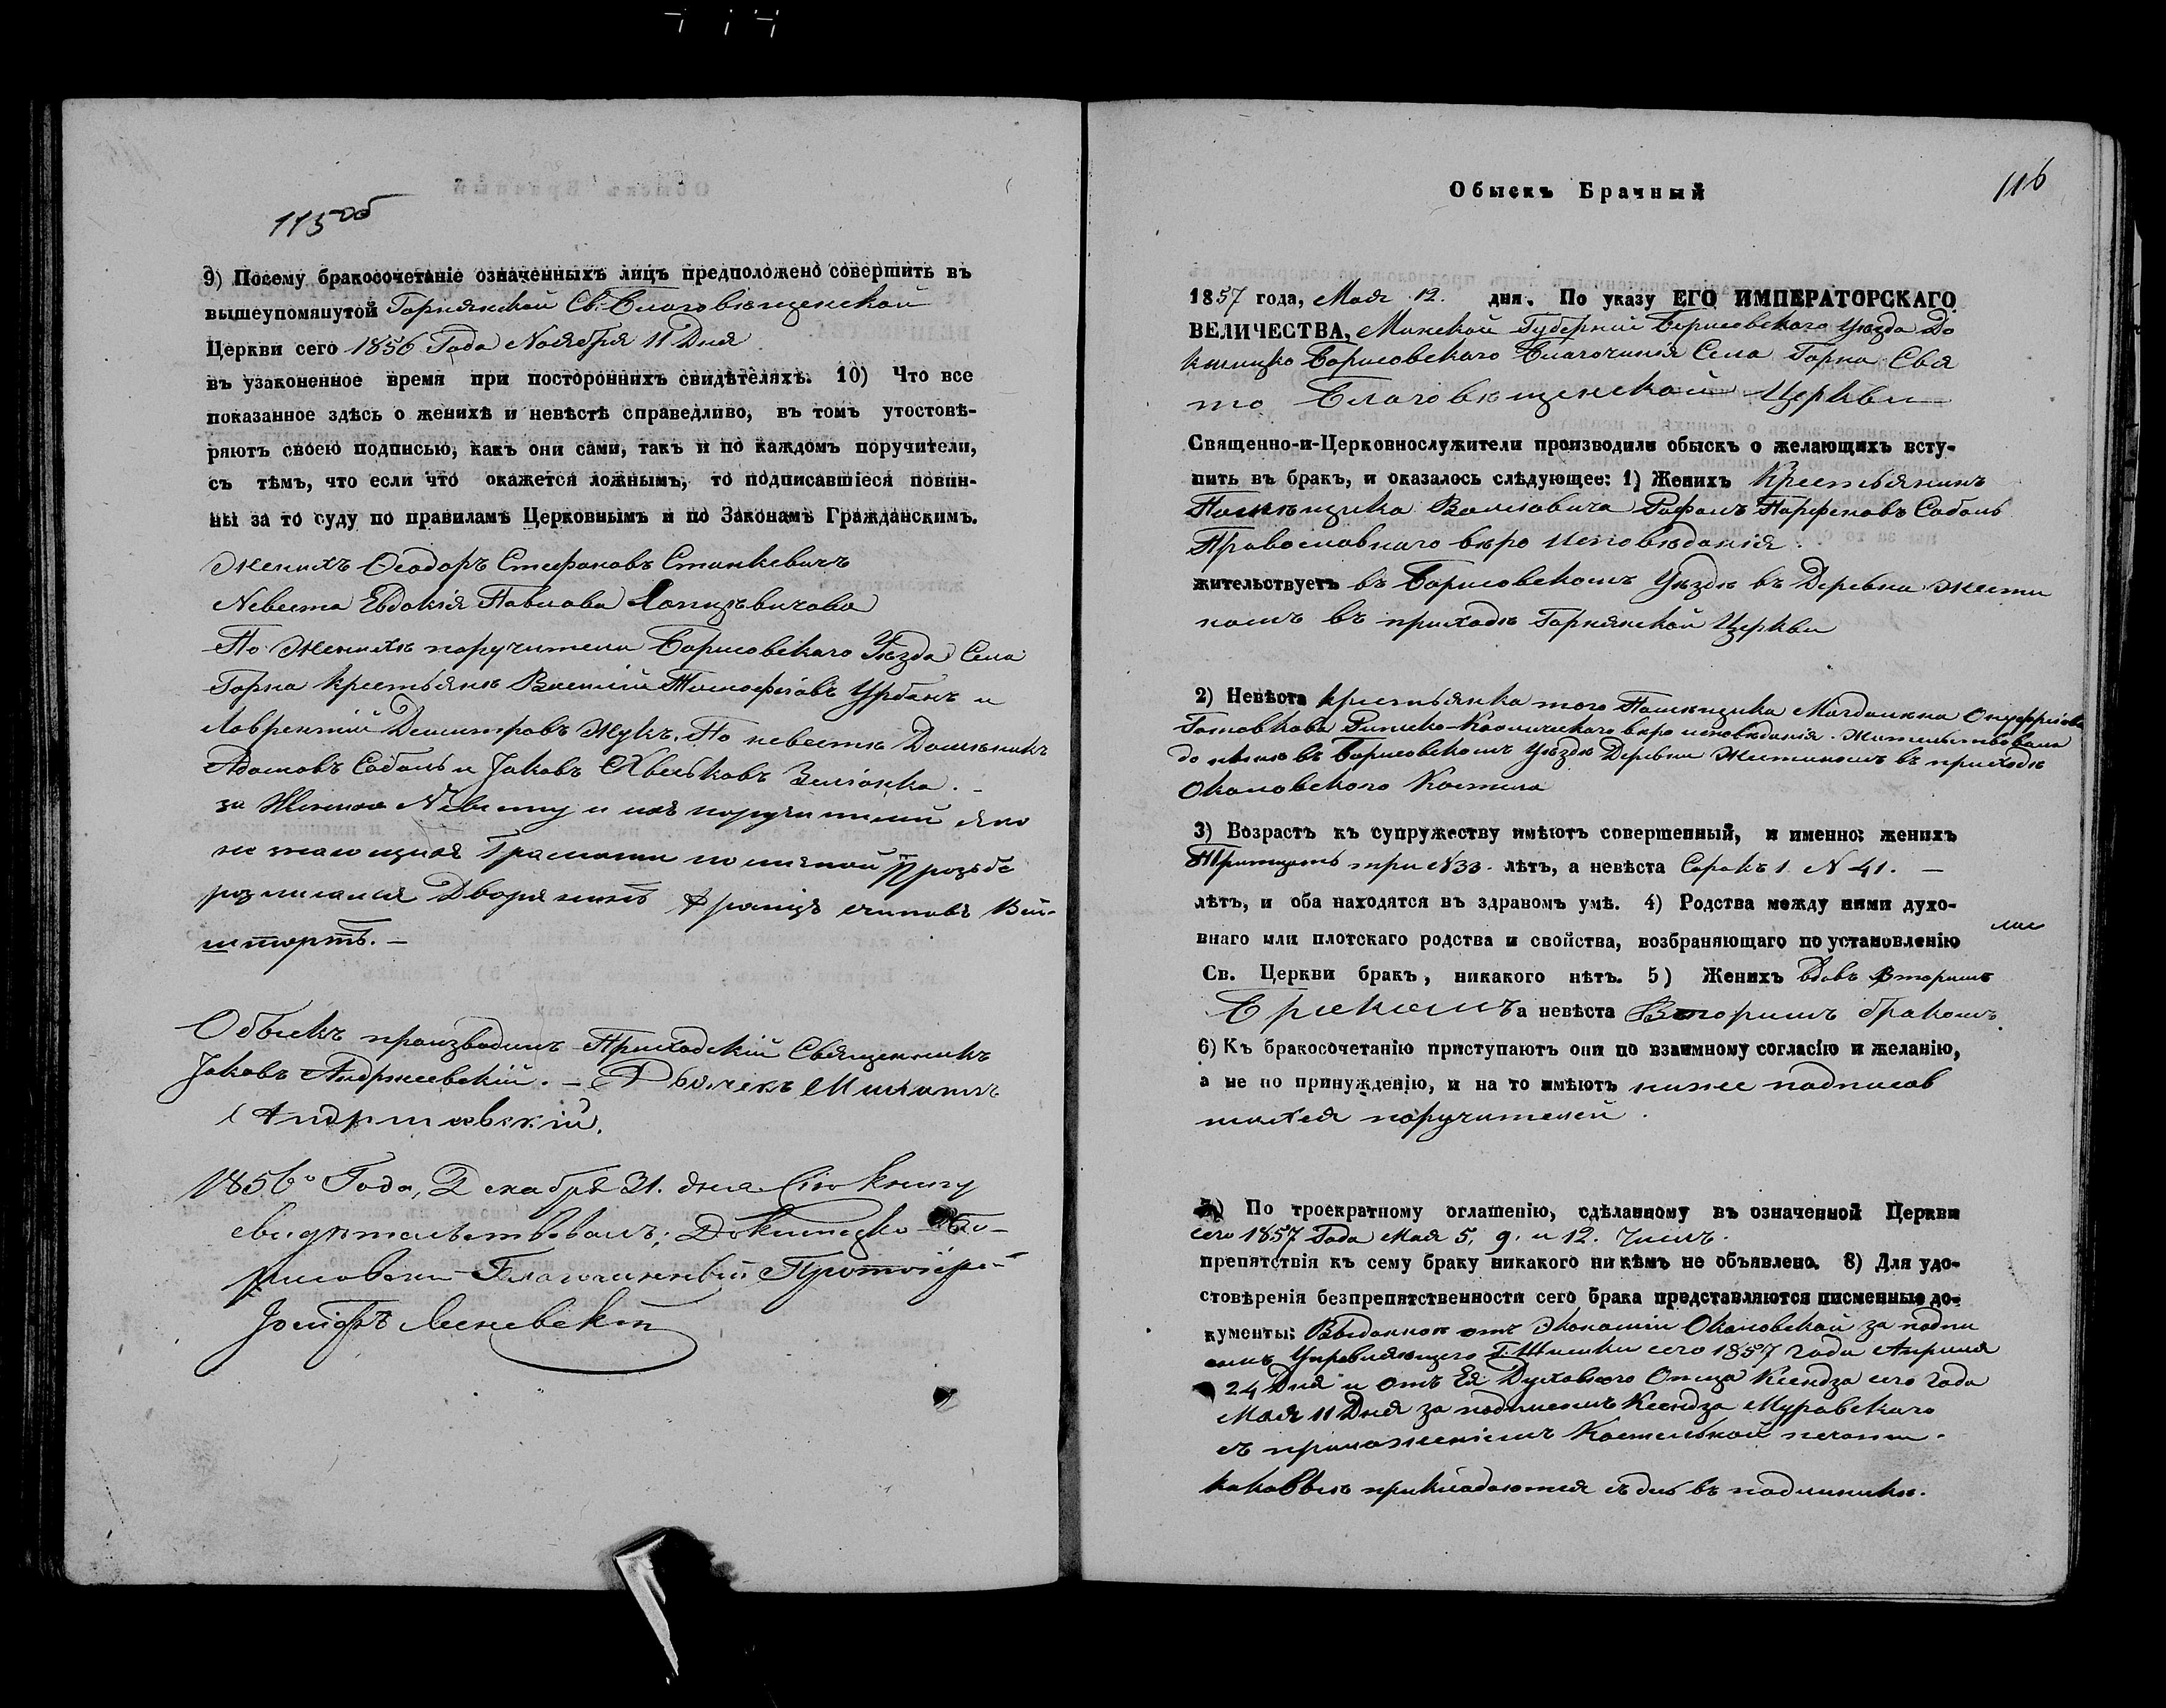 115об
9) Посему бракосочетаніе означенныхъ лицъ предположено совершить въ
вышеупомянутой Горнянской Св. Благовѣщенской
Церкви сего 1856 Года Ноября 11 Дня
въ узаконенное время при постороннихъ свидѣтеляхъ. 10) Что все
показанное здѣсь о женихѣ и невѣстѣ справедливо, въ томъ утостовѣ-
ряютъ своею подписью, какъ они сами, такъ и по каждомъ поручители,
съ тѣмъ, что если что окажется ложнымъ, то подписавшіеся повин-
ны за то суду по правиламъ Церковнымъ и по Законамъ Гражданскимъ.
Женихъ Ѳеодоръ Стефановъ Станкевичъ
Невеста Евдокія Павлова
По женихѣ поручители Борисовскаго Уѣзда Села
Горна крестьяне Василій Тимофѣовъ Урбанъ и
Лаврентій Демитровъ Жукъ. По невестѣ Доминикъ
Адамовъ Соболь и Іаковъ Зеліонка. –
за Жениха Невесту и ихъ поручителей яко
не знающихъ Грамоты по личной прозьбе
розписался Дворянинъ Францъ
Обыскъ производилъ Приходскій Священникъ
Іаковъ Андржеевскій. – Дьячекъ
1856го Года, Декабря 31. дня Сію книгу
свидѣтельствовалъ: Докшицко-Бо-
рисовский Благочинный Протоіерей
Іосифъ
116
Обыскъ Брачный
1857 года, Мая 12. дня. По указу ЕГО ИМПЕРАТОРСКАГО
ВЕЛИЧЕСТВА, Минской Губерніи Борисовскаго Уѣзда До
кшицко Борисовскаго Благочинія Села Горна Свя
то Благовѣщенской Церкви
Священно-и-Церковнослужители производили обыскъ о желающихъ всту-
пить въ бракъ, и оказалось слѣдующее: 1) Женихъ Крестьянинъ
Помѣщика Рафалъ Парфеновъ Соболь
Православнаго вѣро исповѣданія.
жительствуетъ въ Борисовскомъ Уѣздѣ въ Деревни Жести
номъ въ приходѣ Горнянской Церкви
2) Невѣста крестьянка того Помѣщика Магдалина Онуффріова
Римско-Католическаго вѣро исповѣданія. Жительствовала
до селѣ въ Борисовскомъ Уѣздѣ Деревни Жестиномъ въ приходѣ
Околовского Костела
3) Возрастъ къ супружеству имѣютъ совершенный, и именно: женихъ
Тритцать три N 33. лѣтъ, а невѣста Сорокъ 1. N 41. –
лѣтъ, и оба находятся въ здравомъ умѣ. 4) Родства между ними духо-
внаго или плотскаго родства и свойства, возбраняющаго по установленію
Св. Церкви бракъ, никакого нѣтъ. 5) Женихъ вдовъ Вторымъ
Бракомъ а невѣста Вторымъ бракомъ.
6) Къ бракосочетанію приступаютъ они по взаимному согласію и желанію,
а не по принужденію, и на то имѣютъ ниже подписав
шихся поручителей.
7) По троекратному оглашенію, сдѣланному въ означенной Церкви
сего 1857 Года Мая 5, 9. и 12. Числъ.
препятствія къ сему браку никакого никѣмъ не объявлено. 8) Для удо-
стовѣренія безпрепятственности сего брака представляются писменные до-
кументы: Выданное отъ Экономіи Околовской за подпи
сомъ Управляющего сего 1857 года Апреля
24 Дня и отъ Ея Духовного Отца Ксендза сего Года
Мая 11 Дня за подписомъ Ксендза Муравскаго
съ приложеніемъ Костельной печати.
каковые прикладаются здѣсь въ подлинникѣ.